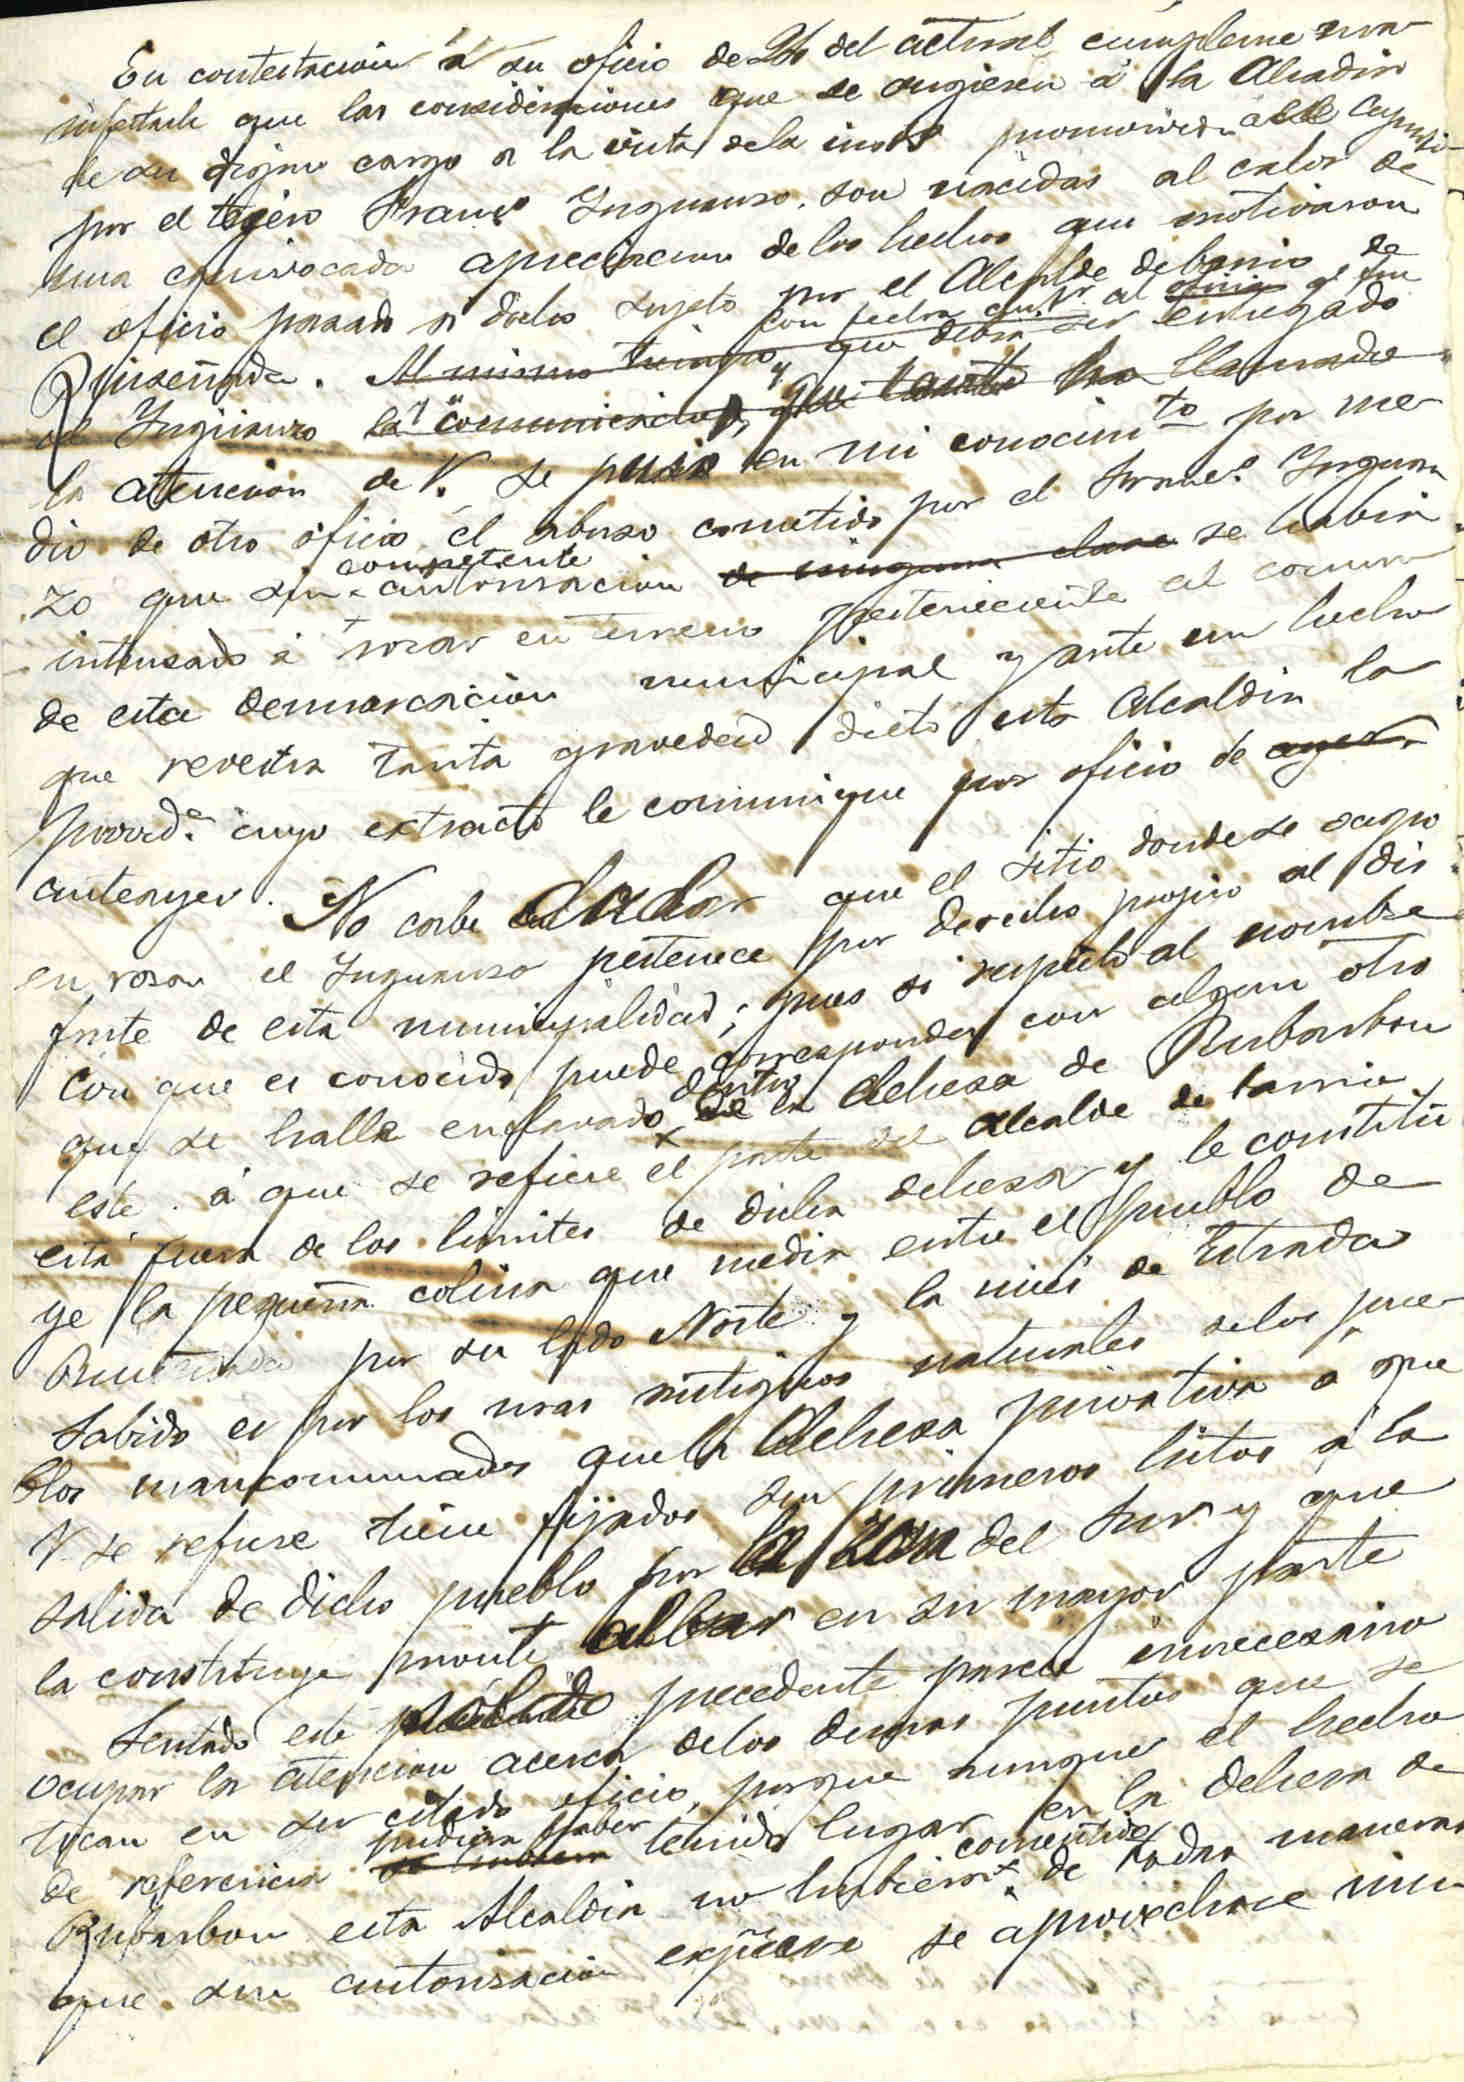 En contestacion á su oficio de 26 del actual cumpleme ma-
nifestarle que las consideraciones que se sugieren á la Alcadia
de su digno cargo á la vista de la promovida
por el tejero Franco Inguanzo. son nacidas al calor de
una equivocada apreciacion de los hechos que motivaron
el oficio pasado á dicho sujeto por el Alcalde de barrio de
Buseñada. Al mismo tiempo, con fecha y que debia ser entregado
al Inguanzo la comunicacion, que tanto ha llamado
la atencion de V. se puso en mi conocimto por me-
dio de otro oficio el abuso cometido por el Franco. Inguan
zo que sin competente autorisacion de ninguna clase se habia
intrusado á rozar en terreno perteneciente al comun
de esta demarcacion municipal y ante un hecho
que revestia tanta gravedad dictó esta Alcaldia la
provida cuyo extracto le comunique por oficio de ayer.
anteayer. No cabe dudar que el sitio donde se ocupo
en rosar el Inguanzo pertenece por derecho propio al dis
frute de esta municipalidad; pues si respecto al nombre
con que es conocido puede corresponder con algun otro
que se halle enclavado dentro de la dehesa de Rubarbon
este á que se refiere el parte del Alcalde de barrio
está fuera de los limites de dicha dehesa y le constitu
ye la pequeña colina que media entre el pueblo de
Buseñada por su lado Norte y la mies de Estrada
Sabido es por los mas antiguos naturales de los pue-
blos mancomunados que la dehesa privativa á que
V. se refiere tiene fijados sus primeros hitos á la
salida de dicho pueblo por la zona del Sur y que
la constituye monte albar en su mayor parte
Sentado este precedente parece innecesario
ocupar la atencion acerca de los demas puntos que se
tocan en su citado oficio, porque aunque el hecho
de referencia pudiera haber tenido lugar en la dehesa de
Rubarbon esta Alcaldia no hubiera consentido de todas maneras
que sin autorisacion expresa se aprovechase nin-